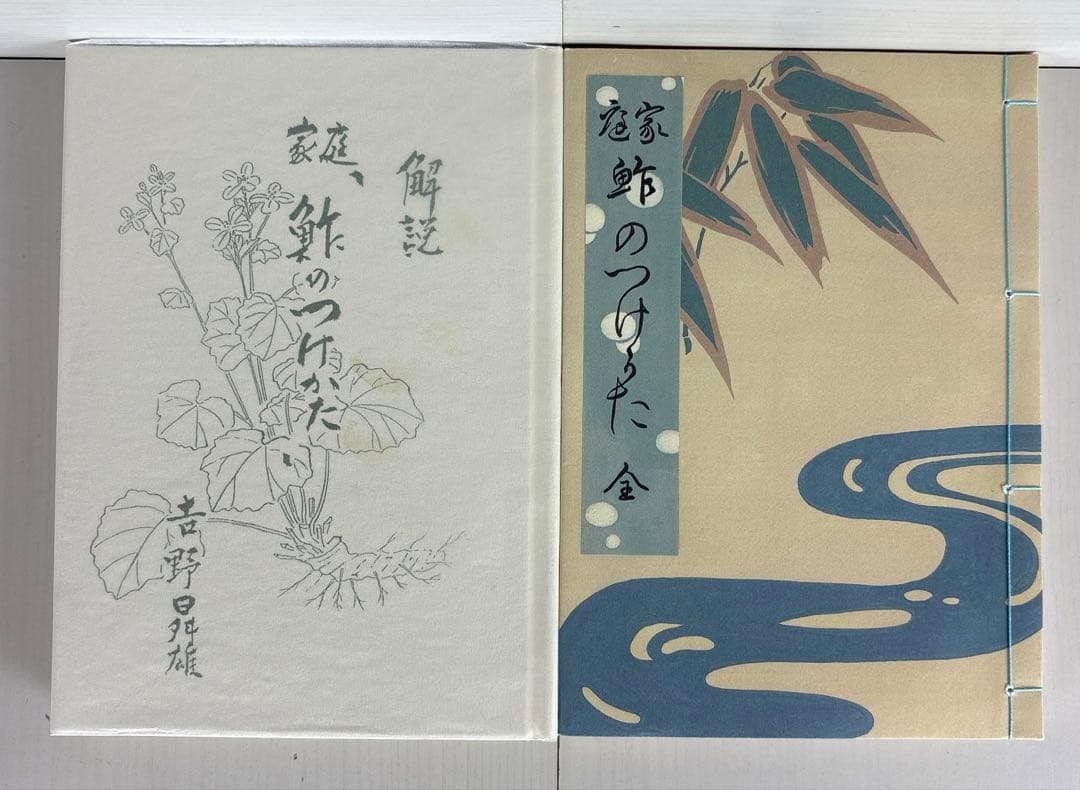 解説
家庭、鮓のつけかた
吉野曻雄
家庭
鮓のつけかた
全